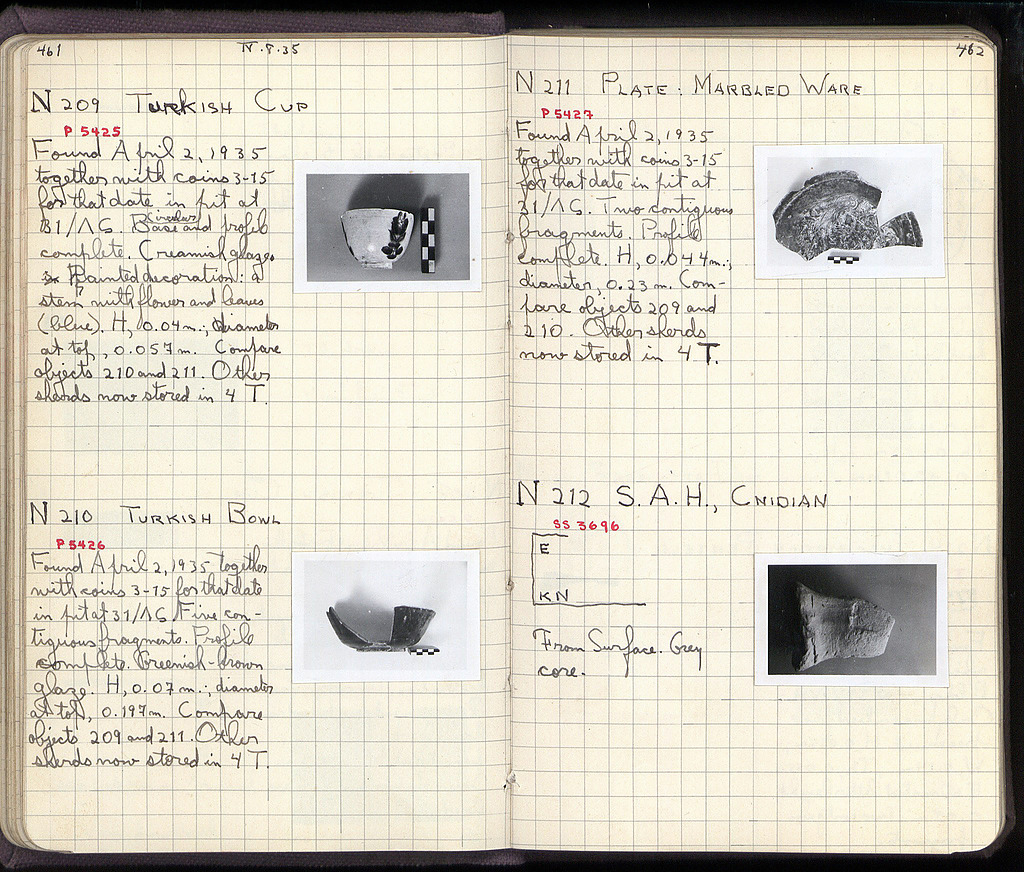 461
IV.8.35
N 209 TURKISH CUP
P 5425
Found April 2, 1935
together with coins 3-15
for that date in pit at
31/ΛΣ. Circular Base and profile
complete. Creamish glaze.
Painted decoration: a
stem with flower and leaves
(blue). H, 0.04 m.; diameter
at top, 0.057 m. Compare
objects 210 and 211. Other
sherds now stored in 4 T.
N 210 TURKISH BOWL
P 5426
Found April 2, 1935 together
with coins 3-15 for that date
in pit at 31/ΛΣ. Five con-
tiguous fragments. Profile
complete. Greenish-brown
glaze. H, 0.07 m.; diameter
at top, 0.197 m. Compare
objects 209 and 211. Other
sherds now stored in 4 T.
462
N 211 PLATE: MARBLED WARE
P 5427
Found April 2, 1935
together with coins 3-15
for that date in pit at
31/ΛΣ. Two contiguous
fragments. Profile
complete. H, 0.044 m.;
diameter, 0.23 m. Com-
pare objects 209 and
210. Other sherds
now stored in 4 T.
N 212 S.A.H., CNIDIAN
SS 3696
E
KN
From Surface. Grey
core.